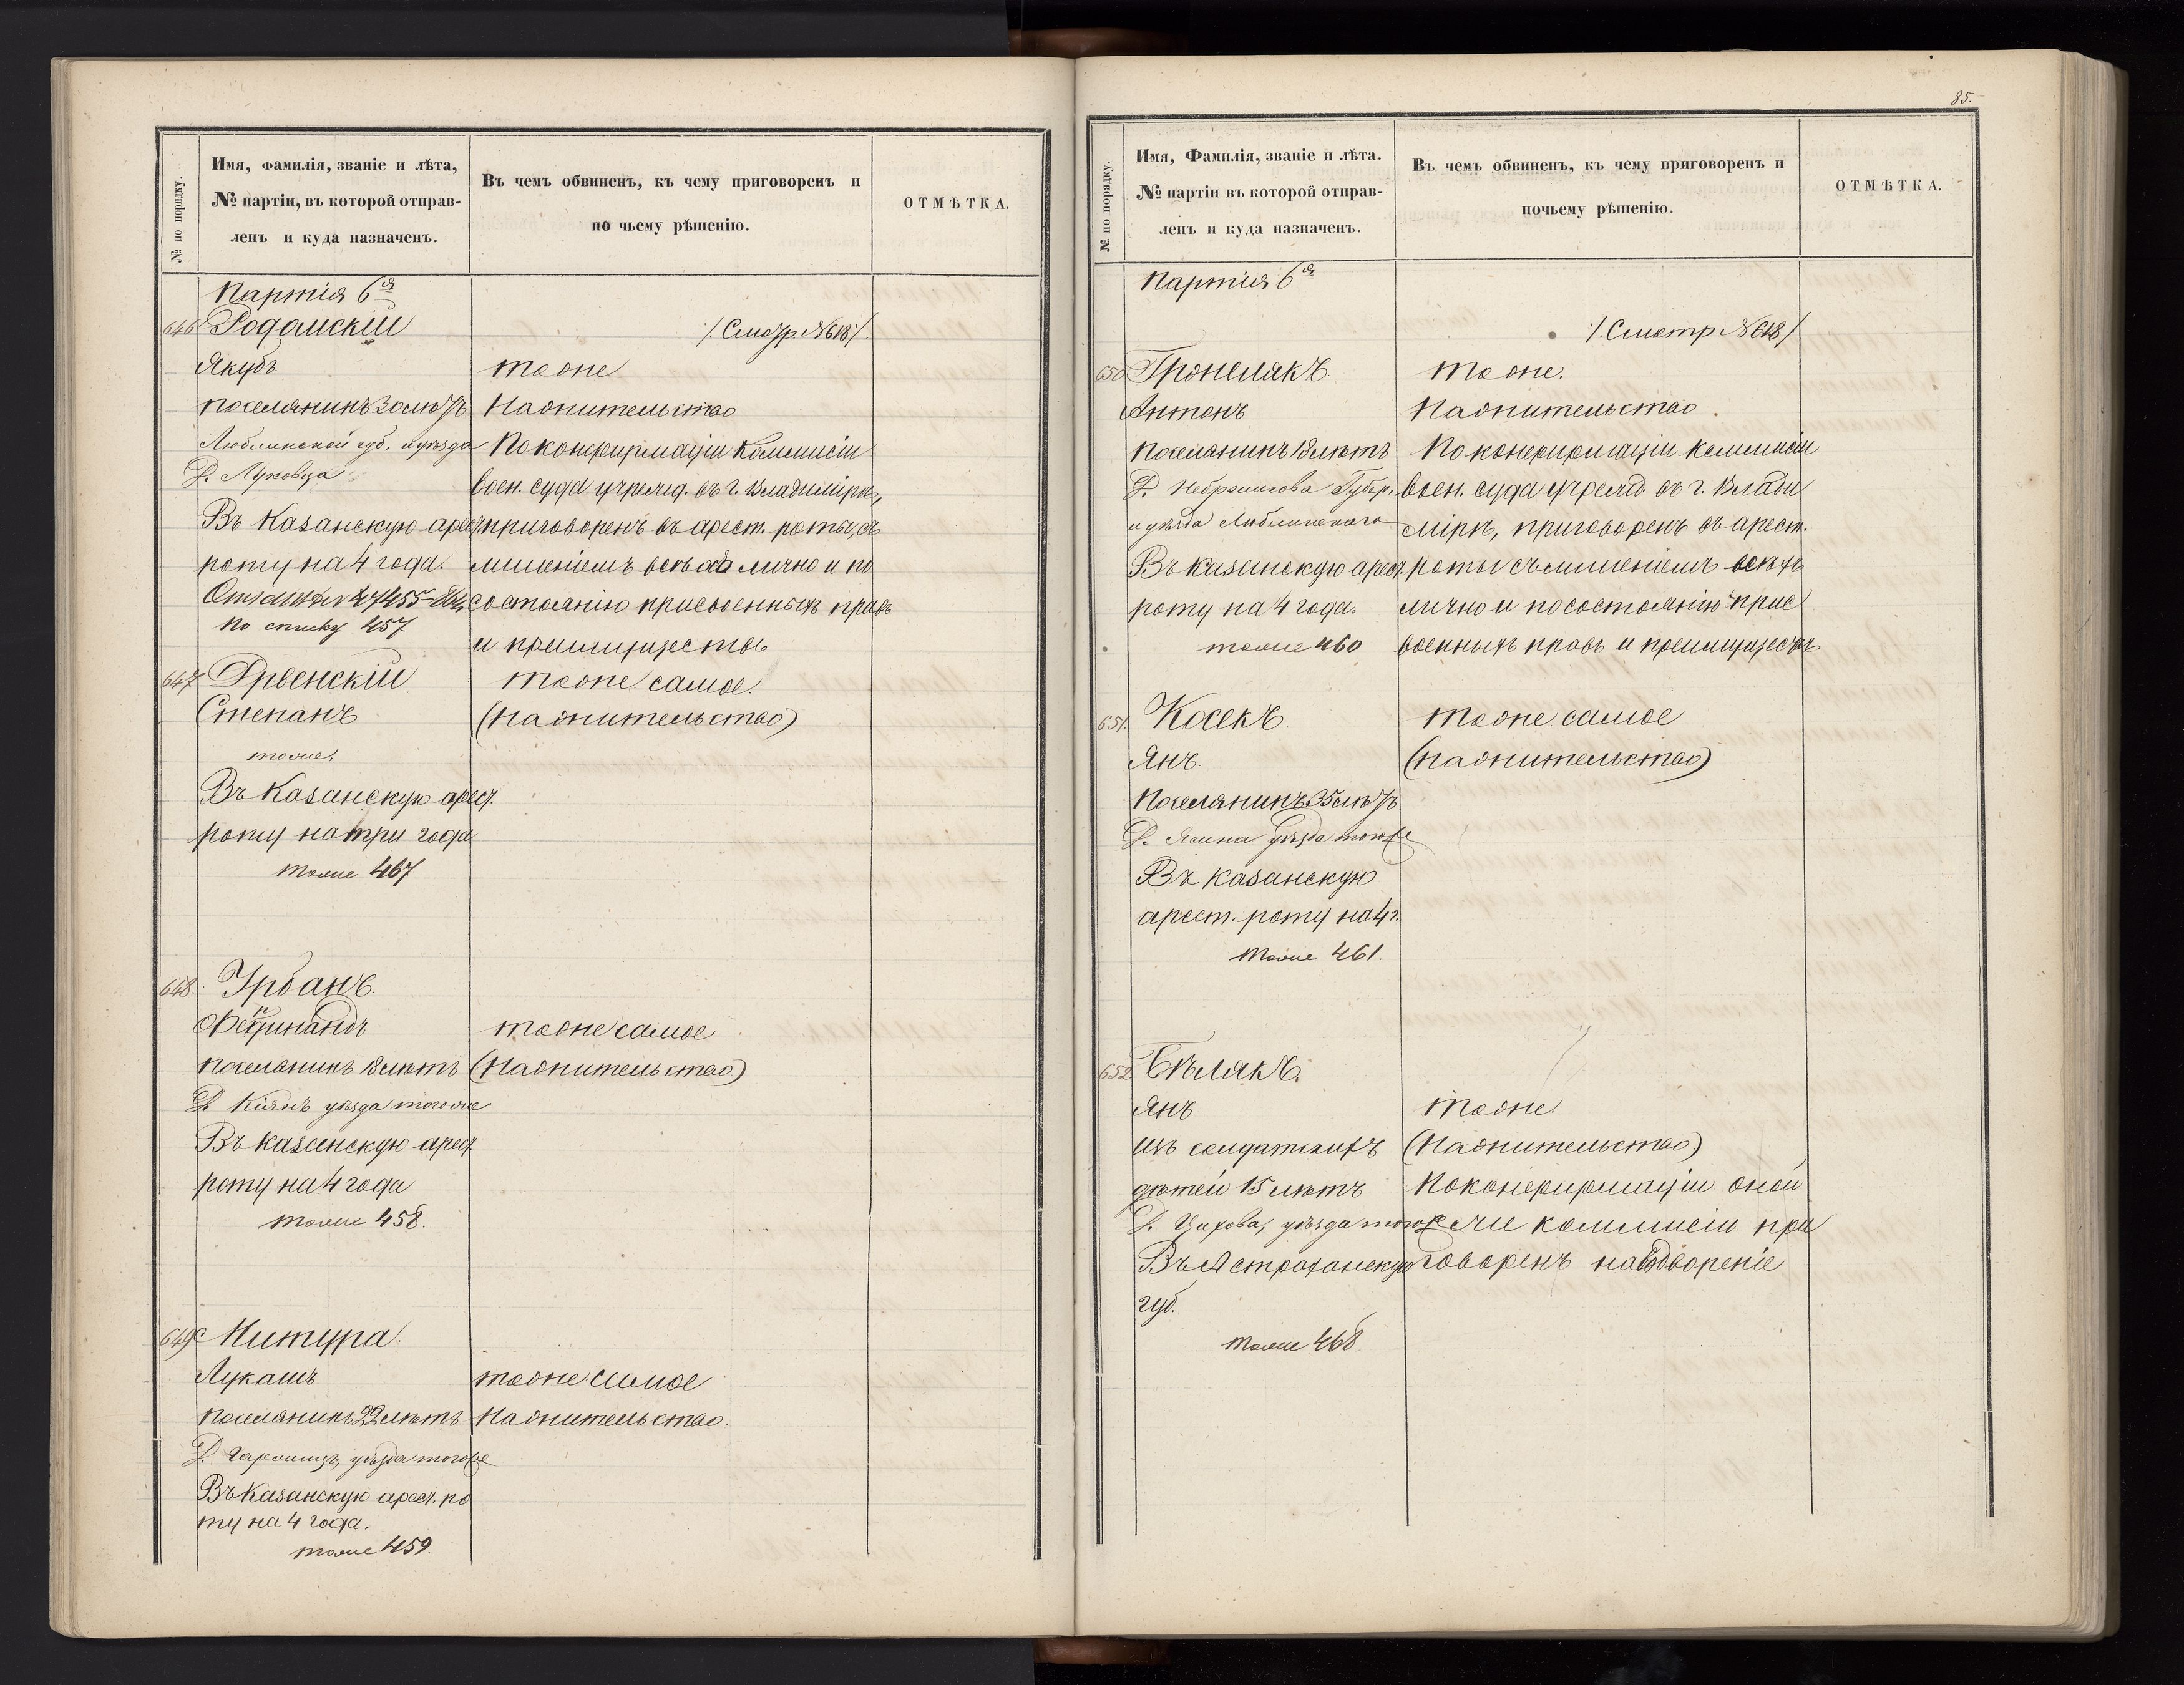 № по порядку.
Имя, фамилія, званіе и лѣта,
№ партіи, въ которой отправ-
ленъ и куда назначенъ.
Въ чемъ обвиненъ, къ чему приговоренъ и
по чьему рѣшенію.
ОТМѢТКА.
Партія 6я
646 Родамскій
/Смотр. №618/
Якубъ
тоже
поселянинъ 30 лѣтъ
Наднительство
Люблинской губ. и уѣзда
По конфирмаціи Коммисіи
Д. Луковца
воен. суда учрежд. въ г. Владимірѣ,
Въ Казанскую арест.
приговоренъ въ арест. роты, съ
роту на 4 года.
лишеніемъ всѣхъ лично и по
состоянію присвоенныхъ правъ
По списку 457
и преимуществъ
647 Дрвенскій
тоже самое.
Степанъ
тоже.
Въ Казанскую арест.
роту на три года
тоже 467
648. Урбанъ
Фердинандъ
тоже самое
поселянинъ 18 лѣтъ
Д. уѣзда того же
Въ Казанскую арест.
роту на 4 года
тоже 458.
649 Митура
Лукашъ
тоже самое
поселянинъ 22 лѣтъ
Д. уѣзда того же
Въ Казанскую арест. ро
ту на 4 года.
тоже 459.
85.
№ по порядку.
Имя, Фамилія, званіе и лѣта.
№ партіи въ которой отправ-
ленъ и куда назначенъ.
Въ чемъ обвиненъ, къ чему приговоренъ и
почьему рѣшенію.
ОТМѢТКА.
Партія 6я
/Смотр №618/
650 Гронелякъ
тоже.
Антонъ
поселянинъ 18 лѣтъ
По конфирмаціи коммисіи
Д. Губер.
воен. суда учрежд. въ г. Влади
и уѣзда Люблинскаго
мірѣ, приговоренъ въ арест.
Въ Казанскую арест.
роты съ лишеніемъ всѣхъ
роту на 4 года.
лично и по состоянію прис
тоже 460
военныхъ правъ и преимуществъ
651. Косекъ
тоже самое
Янъ
Поселянинъ 35 лѣтъ
Д. уѣзда того же
Въ Казанскую
арест. роту на 4 г.
тоже 461.
652 Бѣлякъ.
Янъ
тоже.
изъ солдатскихъ
дѣтей 15 лѣтъ
По конфирмаціи оной
Д. Цихова, уѣзда того же
же коммисіи при
Въ Астраханскую
говоренъ на водвореніе
губ.
тоже 468